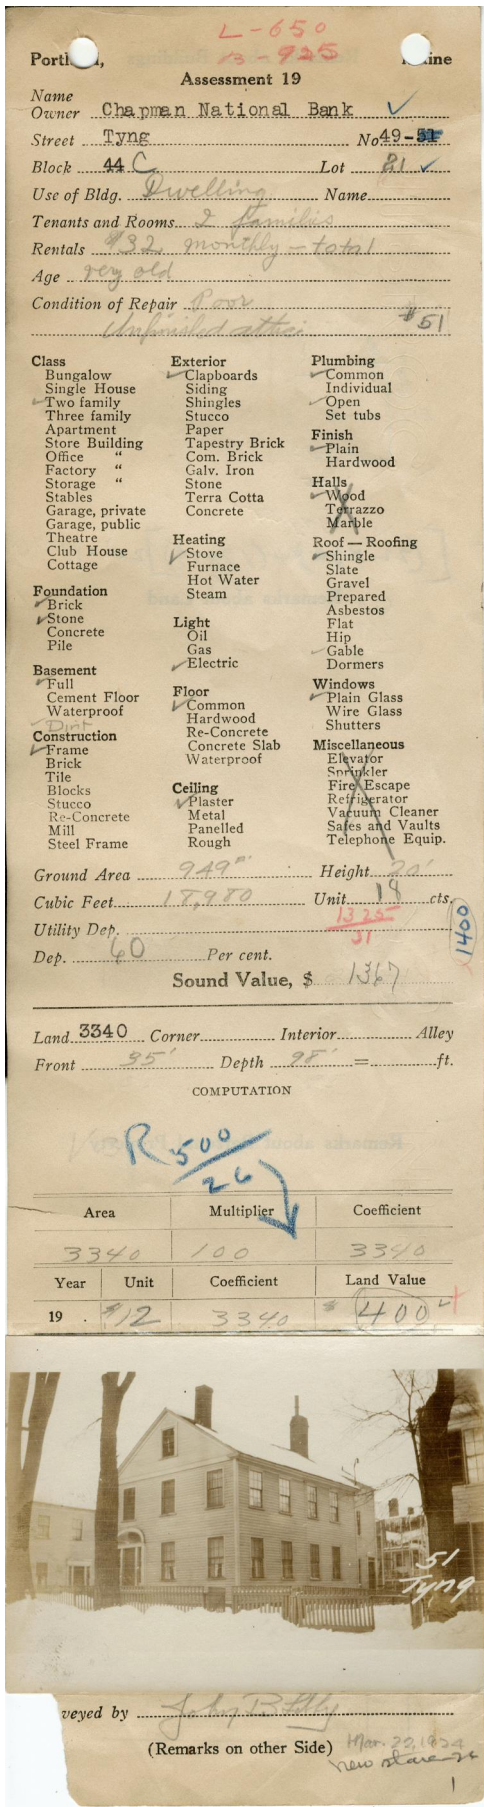 L-650
B-925
Portl , ine
Assessment 19
Name
Owner Chapman National Bank ✓
Street Tyng No 49-51
Block 44 C Lot 21 ✓
Use of Bldg. Dwelling Name
Tenants and Rooms 2 families
Rentals $32 monthly - total
Age very old
Condition of Repair Poor
Unfinished attic $51
Class
Bungalow
Single House
✓ Two family
Three family
Apartment
Store Building
Office "
Factory "
Storage "
Stables
Garage, private
Garage, public
Theatre
Club House
Cottage
Foundation
✓ Brick
✓ Stone
Concrete
Pile
Basement
✓ Full
Cement Floor
Waterproof
✓ Dirt
Construction
✓ Frame
Brick
Tile
Blocks
Stucco
Re-Concrete
Mill
Steel Frame
Exterior
✓ Clapboards
Siding
Shingles
Stucco
Paper
Tapestry Brick
Com. Brick
Galv. Iron
Stone
Terra Cotta
Concrete
Heating
✓ Stove
Furnace
Hot Water
Steam
Light
Oil
Gas
✓ Electric
Floor
✓ Common
Hardwood
Re-Concrete
Concrete Slab
Waterproof
Ceiling
✓ Plaster
Metal
Panelled
Rough
Plumbing
✓ Common
Individual
✓ Open
Set tubs
Finish
✓ Plain
Hardwood
Halls
✓ Wood
Terrazzo
Marble
Roof — Roofing
✓ Shingle
Slate
Gravel
Prepared
Asbestos
Flat
Hip
✓ Gable
Dormers
Windows
✓ Plain Glass
Wire Glass
Shutters
Miscellaneous
Elevator
Sprinkler
Fire Escape
Refrigerator
Vacuum Cleaner
Safes and Vaults
Telephone Equip.
Ground Area 949 Height 20'
Cubic Feet 18,980 Unit 18 cts.
Utility Dep. 1325
51
1400
Dep. 60 Per cent.
Sound Value, $ 1367
Land 3340 Corner Interior Alley
Front 35' Depth 98' = ft.
COMPUTATION
R 500
26
Area Multiplier Coefficient
3340 100 3340
Year Unit Coefficient Land Value
19 . $12 3340 $ 400
51
Tyng
veyed by
(Remarks on other Side)
Mar. 22, 1924
1